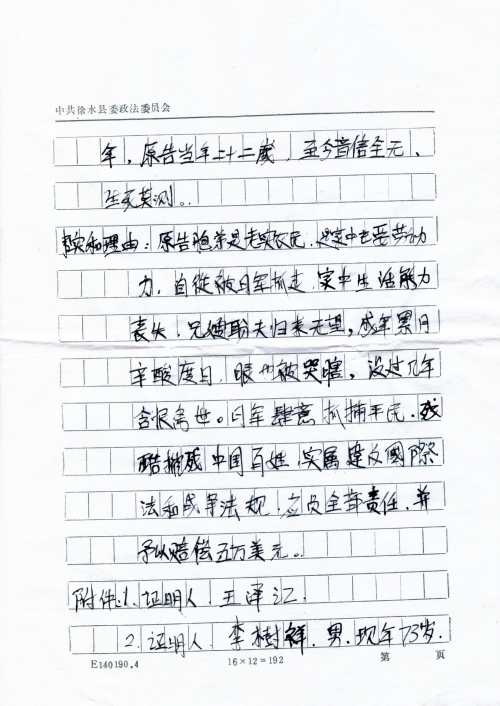 中共徐水县委政法委员会
年，原告当年二十二歲，至今音信全无、
生死莫测。
事实和理由：原告胞弟是老实农民，是家中主要劳动
力，自從被日军抓走，家中生活能力
丧失，兄嫂盼夫归来无望，成年累月
辛酸度日，眼也被哭瞎，没过几年
含恨离世。日军肆意抓捕平民，残
酷摧残中国百姓，实属違反國際
法和战争法规，应负全部责任，并
予以赔偿五万美元。
附件：1、证明人、王泽江.
2、证明人、李樹祥、男、现年73岁.
E140190.4 16×12=192 第 页